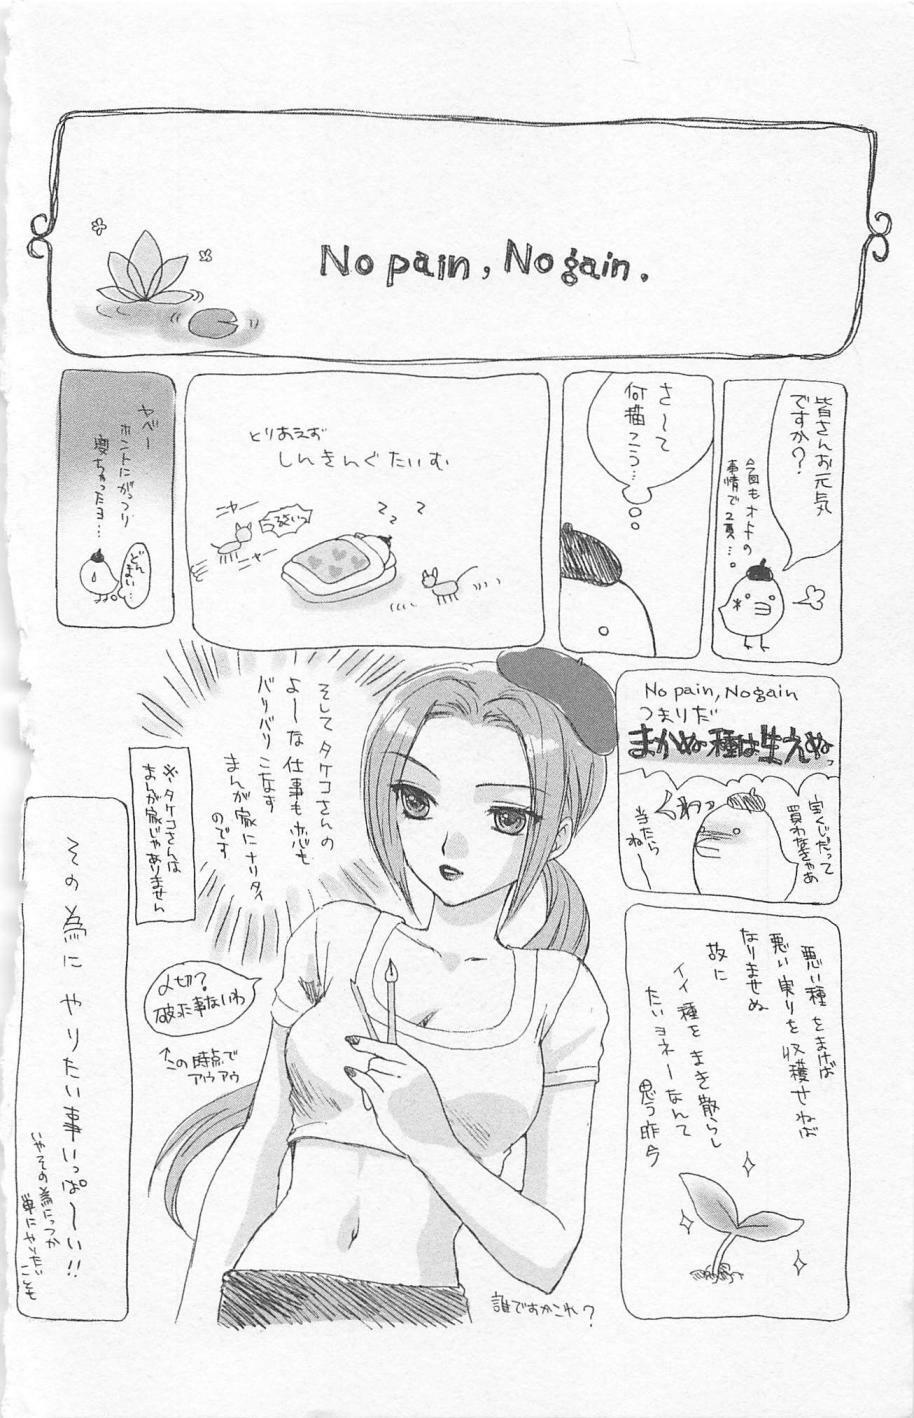 No pain, No gain.
皆さんお元気
ですか?
今回もオトナの
事情で2頁…
さ〜て
何描こう…
とりあえず
しんきんぐたいむ
ニャー
ニャー
ヤベー
ホントにがっつり
寝ちゃったヨ…
どん
まい…
No pain, No gain
つまりだ
まかぬ種は生えぬっ
宝くじだって
買わなきゃあ
くわっ
当たら
ね〜
悪い種をまけば
悪い実りを収穫せねば
なりませぬ
故に
イイ種をまき散らし
たいヨネーなんて
思う昨今
そしてタケコさんの
よ〜な仕事も恋も
バリバリこなす
まんが家にナリタイ
のです
※タケコさんは
まんが家じゃありません
〆切?
破った事ないわ
↑この時点で
アウアウ
誰ですかこれ?
その為にやりたい事いっぱ〜い!!
いやその為にっつか
単にやりたい
ことも